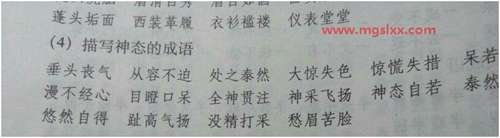 蓬头垢面 西装革履 衣衫褴褛 仪表堂堂
www.mgslxx.com
(4) 描写神态的成语
垂头丧气 从容不迫 处之泰然 大惊失色 惊慌失措 呆若
漫不经心 目瞪口呆 全神贯注 神采飞扬 神态自若 泰然
悠然自得 趾高气扬 没精打采 愁眉苦脸